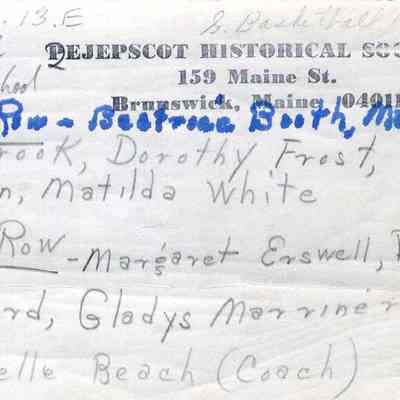 . 13. E S. Basketball
PEJEPSCOT HISTORICAL SOC
hool 159 Maine St.
Brunswick, Maine 04011
Row - Beatrice Booth, Ma
rook, Dorothy Frost,
n, Matilda White
Row - Margaret Erswell,
rd, Gladys Marriner
elle Beach (Coach)